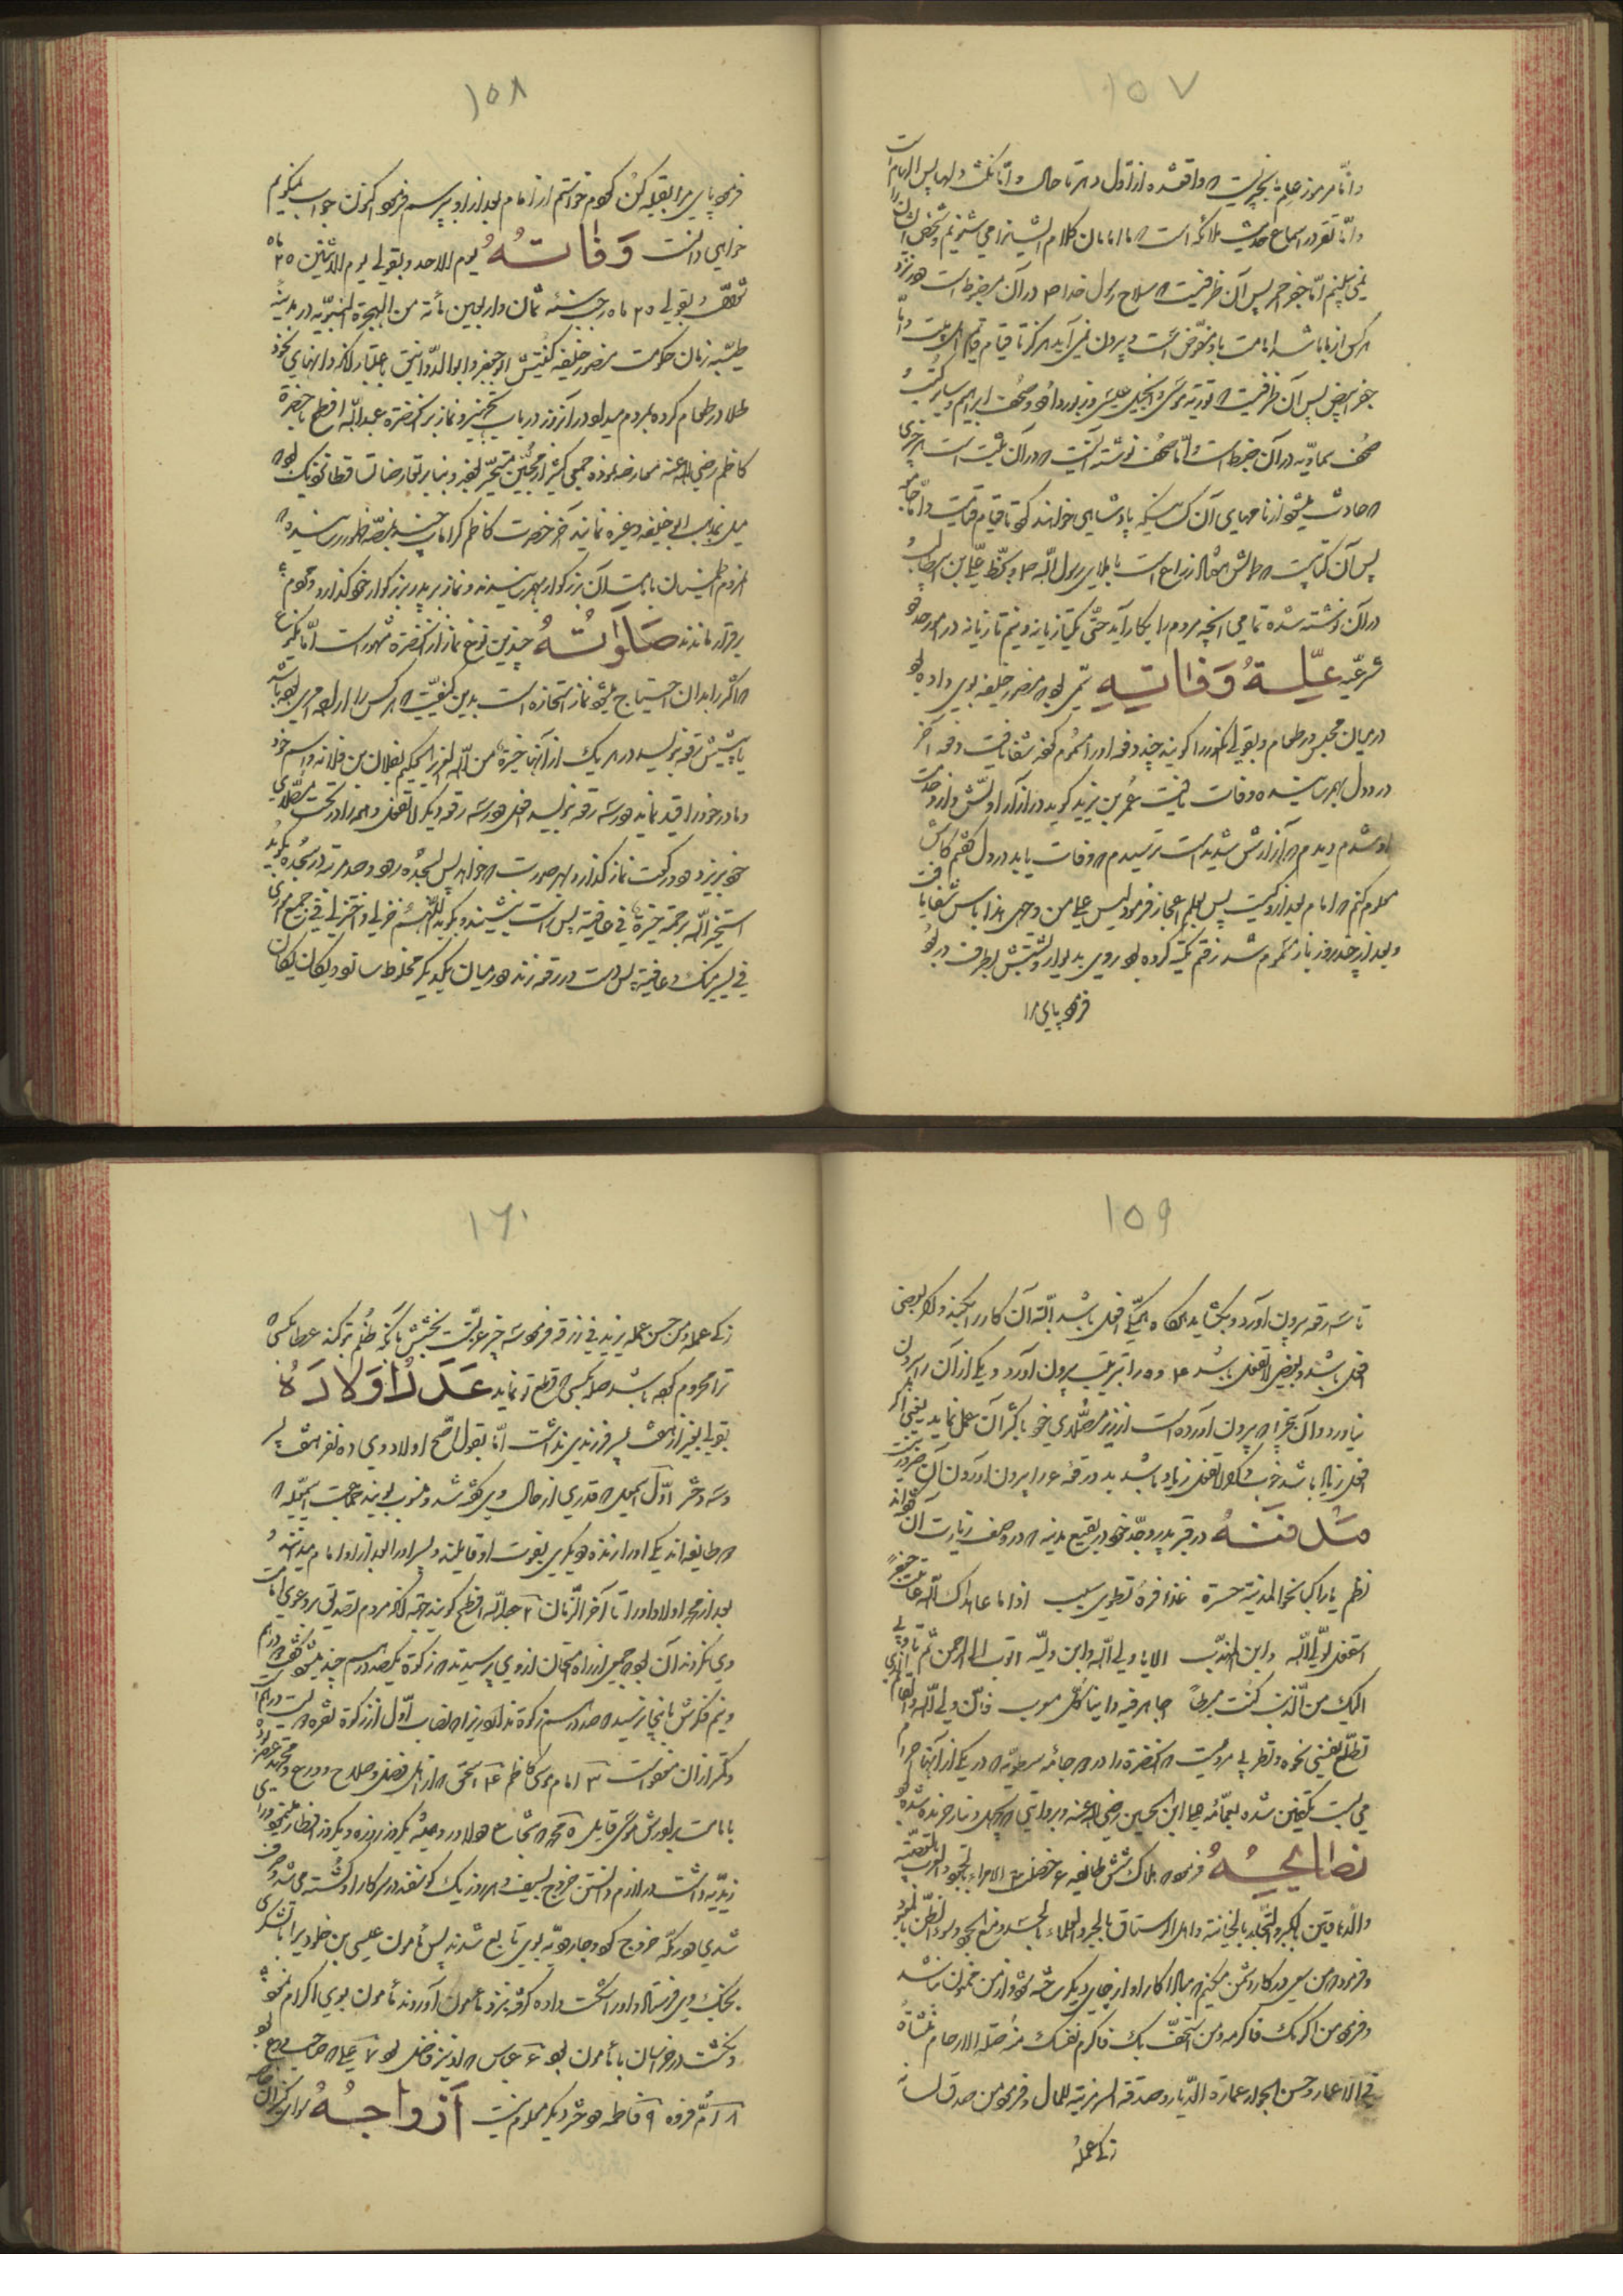 ١٥٧
و امّا مرموز علم بچیزیست که واقع شده از اوّل دهر تا حال و امّا نکت دلها پس الهام است
و امّا نقر در اسماع حدیث ملائکه است که ما امامان کلام ایشانرا می شنویم و شخص ایشان را
نمی بینیم امّا جفر احمر پس آن ظرفیست که سلاح رسول خدا ص در آن مضبوط است هر نزد
هر کس از ما باشد امامت باو مفوّض است و بیرون نمی آید هرگز تا قیام قایم اهل بیت و امّا
جفر ابیض پس آن ظرفیست که توریة موسی و انجیل عیسی و زبور داود و صحف ابراهیم و سایر کتب و
صحف سماویه در آن مضبوط است و امّا صحف نوشته آنیست که در آن مثبت است هر چیزی
که حادث میشود از نامهای آن کسانیکه پادشاهی خواهند کرد تا قیام قیامت و امّا جامعه
پس آن کتابیست که طولش هفتاد ذراع است باملای رسول الله ص و بخطّ علی بن ابیطالب و
در آن نوشته شده تمامی آنچه مردم را بکار آید حتّی یکتازیانه و نیم تازیانه در امور حدود
شرعیّه عِلّةُ وَفاتِهِ سمّی بود که منصور خلیفه بوی داده بود
در میان مجلس در طعام و بقولی انگور را گویند چند دفعه او را مسموم کرد شفا یافت دفعه آخر
در دول بهم رسانیده وفات یافت عمر بن یزید گوید در آزار او پیش وارد خدمت
او شدم دیدم که آزارش شدید است ترسیدم که وفات یابد در دل گفتم کاش
معلوم کنم که امام بعد از او کیست پس بعلم اعجاز فرمود لیس علی من وجعی هذا باس شفا یافت
و بعد از چند روز باز مسموم شد رفتم تکیه کرده بود روی بدیوار و پشتش بطرف در بود
فرمود پای مرا
١٥٨
فرمود پای مرا بقبله کن کردم خواستم از امام بعد از او بپرسم فرمود اکنون جواب نمیگویم
خواهی دانست وَفاتُهُ یوم الاحد و بقولی یوم الاثنین ٢٥ ماه
شوّال و بقولی ٢٥ ماه رجب سنه ثمان و اربعین مأته من الهجرة النبویّه در مدینه
طیّبه زمان حکومت منصور خلیفه کنیتش ابو جعفر و ابو الدّوانیق باعتبار آنکه دانهای نخود
طلا در طعام کرده بمردم میداد در آنروز در باب تجهیز و نماز بر آنحضرة عبدالله افطح با حضرة
کاظم رضی الله عنه معارضه نموده جمعی کثیر از محبّین متحیّر بودند و بنا بر تعارضا تساقطا نزدیک بود که
میل بمذهب ابی حنیفه و غیره نمایند آخر حضرت کاظم کراماتی چند بعرصه ظهور رسانیده که
مردم اطمینان بامامت آن بزرگوار بهم رسانیدند و نماز بر پدر بزرگوار خود گذارد و مردم
برقرار ماندند صَلَواتُهُ چندین نوع نماز از آنحضرة مشهور است امّا یکنوع
که اکثر را بدان احتیاج میشود نماز استخاره است بدین کیفیّت که هر کس را اراده امری بوده باشد
باید شش رقعه بنویسد در هر یک از آنها خیرة من الله العزیز الحکیم لفلان بن فلانه و اسم خود
و مادر خود را قید نماید در سه رقعه بنویسد افعل در سه رقعه دیگر لا تفعل و همه را در تحت مصلّای
خود بریزد و دو رکعت نماز گذارد بهر صورت که خواهد پس بسجده رود و صد مرتبه در سجده بگوید
استخیر الله برحمته خیرة فی عافیة پس راست بنشیند و بگوید اللّهم خر لی و اختر لی فی جمیع اموری
فی یسر منک و عافیة پس دست در رقعه زند و در میان یکدیگر مخلوط سازد و یکان یکان
١٥٩
تا سه رقعه بیرون آورد و بگشاید هرگاه همگی افعل باشد البتّه آن کار را بکند و اگر بعضی
افعل باشد و بعضی لا تفعل باشد ٥ رقعه را بترتیب بیرون آورد و یکی از آن را بیرون
نیاورد و آن پنج را که بیرون آورده است از زیر مصلّای خود باکثر آن عمل نماید یعنی اگر
افعل زیاد باشد خوبست و اگر لا تفعل زیاد باشد بد و رقعه ٦ را بیرون آوردن آن ضرور نیست
مَدفَنهُ در قبر پدر و جدّ خود در بقیع مدینه که در وصف زیارت آن گفته اند
نظم یا راکبا نحو المدینة جسرة عذافرة یطوی بها سبسب اذا ما هداک الله عاینت جعفراً
فقل لولیّ الله و ابن المهذّب الا یا ولیّ الله و ابن ولیّه اتوب الی الرحمن ثم تاوّبی
الیک من الذنب الّذی کنت مبطنا اجاهد فیه دائبا کلّ معرب
تطلّع نفسی نحوه و تطرّبی مرویست که آنحضرة را در ٥ جامه سرطویّه که در یکی از آنها احرام
می بست تکفین شده بعمامه علی ابن الحسین رضی الله عنه و بردایی که بچهل دینار خریده شده بود
نصایحُهُ فرمود که هلاک شش طایفه ٦ خصلت است الامراء بالجور و العرب بالعصبیّة
و الدّهاقین بالکبر و التّجار بالخیانة و اهل الرستاق بالجهل و العلماء بالحسد
و فرمود که من سعی در کار دشمن میکنم که مبادا کار او از جای دیگر ساخته شود و از من ممنون نباشد
و فرمود من اکرمک فاکرمه و من استخفّ بک فاکرم نفسک منه صلة الارحام منساة
فی الاعمار و حسن الجوار عمارة الدّیار و صدقة السرّ مثریة للمال و فرمود من صدق لسانه
زکی عمله
١٦٠
زکی عمله و من حسن عمله یزید فی رزقه فرمود سه چیز عزّتست بخشش بآنکه ظلم بر تو کند عطا بکسی که
ترا محروم کرده باشد صله بکسی که قطع تو نماید عَدَدُ اَوْلادُهُ
بقولی بغیر از هفت پسر فرزندی نداشت امّا بقول اصّح اولاد وی ده نفر هفت پسر
و سه دختر اوّل اسمعیل که قدری از حال وی گفته شد و منسوب بویند جماعت اسمعیلیه که
دو طایفه اند یکی او را زنده و دیگری بفوت او قایلند و پسر او را بعد از او امام میدانند و
بعد از محمد اولاد او را تا آخر الزّمان ٢ عبدالله افطح گویند جهة آنکه مردم تصدیق بدعوی امامت
وی نکردند آن بود که جمعی از راه امتحان از وی پرسیدند که زکوة یکصد درهم چند میشود گفت ٢ درهم
و نیم فکرش باینجا نرسید که صد درهم زکوة ندارد زیرا که نصاب اوّل از زکوة نقره دویست درهمست
و کمتر از آن معفو است ٣ امام موسی کاظم ٤ اسحق که از اهل فضل و صلاح و ورع و اجتهاد بود
بامامت برادرش موسی قایل ٥ محمد که شجاع و دلاور و همیشه یکروز روزه و یکروز افطار میکرد و رای
زیدیّه داشت در لازم دانستن خروج بسیف و هر روز یک گوسفند در سرکار او کشته می شد و صرف
شدی و در مکّه خروج کرد و جارودیّه بوی تابع شدند پس مأمون عیسی بن جلودی را با لشکری
بجنگ وی فرستاد و او را شکست داده گرفته نزد مأمون آوردند مأمون بوی اکرام نمود
و بگذشت در خراسان با مأمون بود ٦ عباس که او نیز فاضل بود ٧ علی که صاحب ورع بود
٨ امّ فروه ٩ فاطمه و دختر دیگر معلوم نیست اَزْواجُهُ